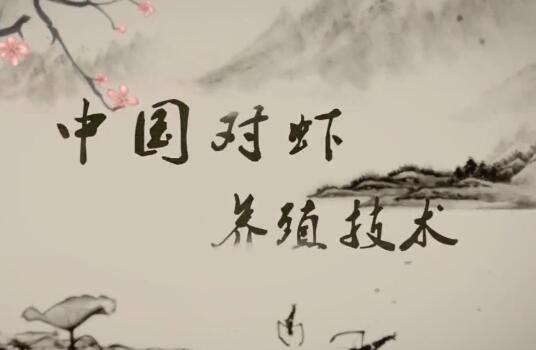 中国对虾
养殖技术